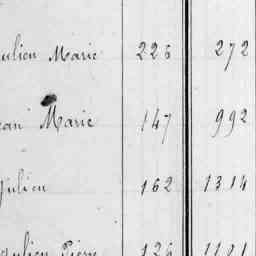 ulien Marie 226 272
ean Marie 147 992
Julien 162 1314
Julien Pierre 126 1101